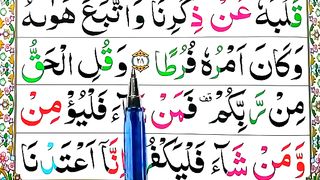 قَلْبَهٗ عَنْ ذِكْرِنَا وَاتَّبَعَ هَوٰىهُ
وَكَانَ اَمْرُهٗ فُرُطًا ۝٢٨ وَقُلِ الْحَقُّ
مِنْ رَّبِّكُمْ ۫ فَمَنْ شَآءَ فَلْيُؤْمِنْ
وَّمَنْ شَآءَ فَلْيَكْفُرْ ۙ اِنَّاۤ اَعْتَدْنَا